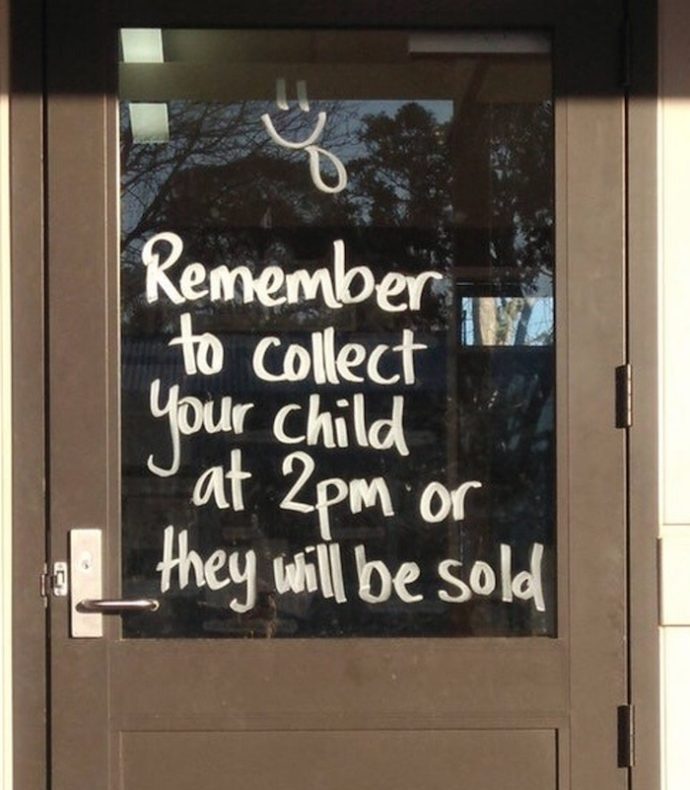 Remember
to collect
your child
at 2pm or
they will be sold